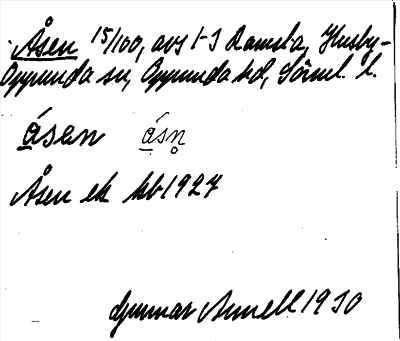 Åsen 15/100, avs 1-3 Ramsta, Husby-
Oppunda sn, Oppunda hd, Sörml. l.
ásen ásn̥
Åsen ek hb 1927
Gunnar Arnell 1930